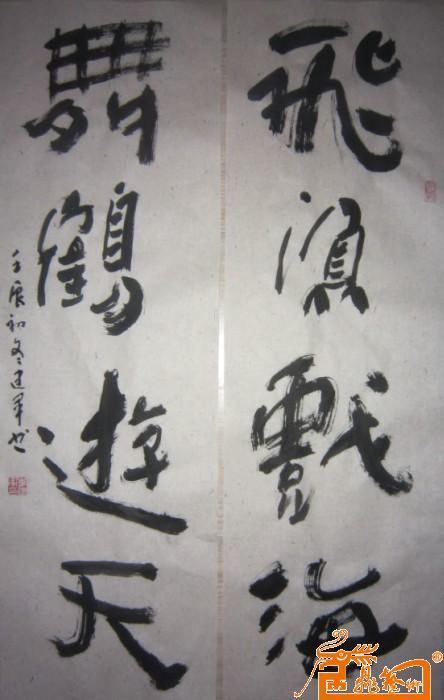 飛鴻戲海
舞鶴遊天
壬辰初冬建军书